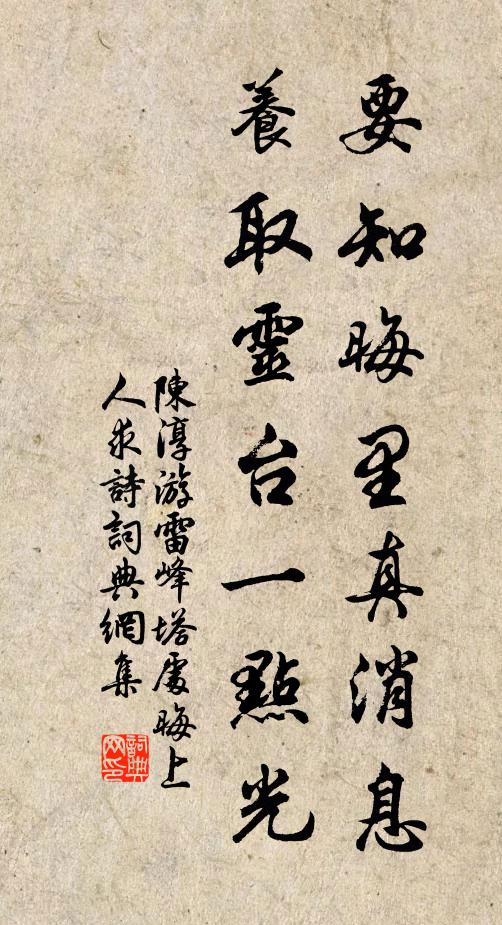 要知晦里真消息
養取靈台一點光
陳淳游雷峰塔處晦上
人求詩詞典網集
詞典
网印